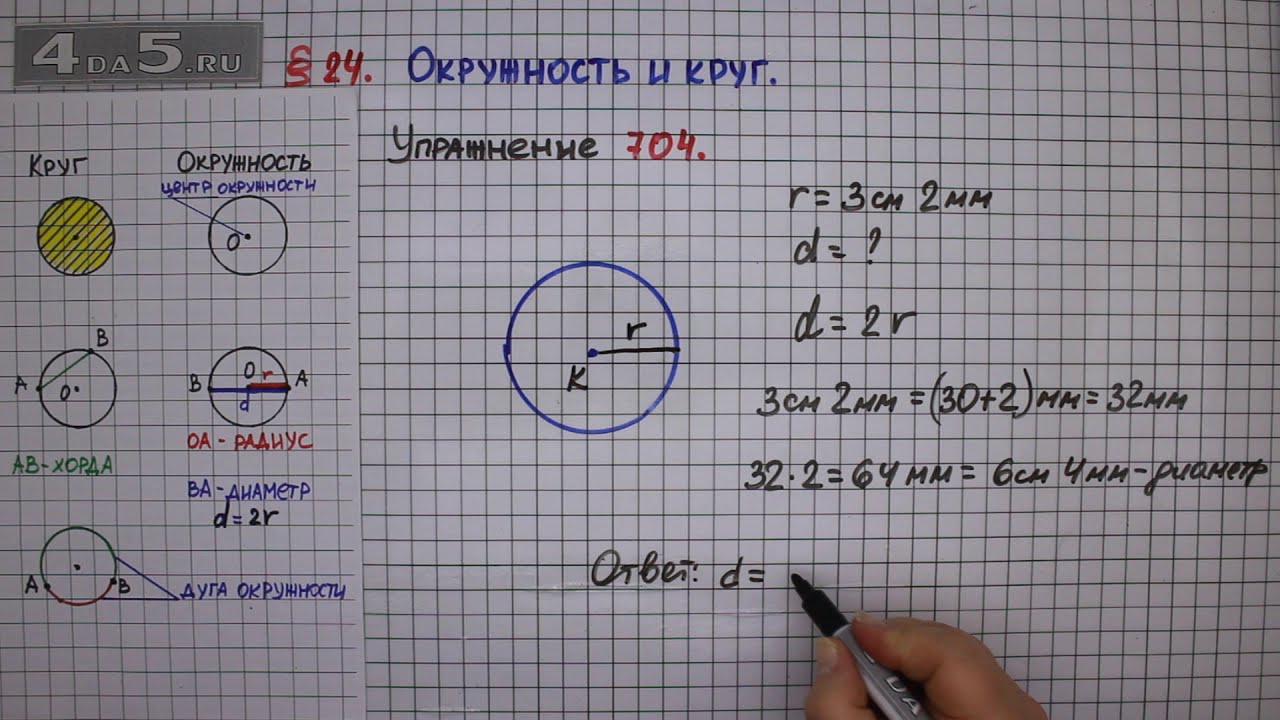 4DA5.RU
§ 24. Окружность и круг.
Упражнение 704.
Круг
Окружность
центр окружности
O
A
B
O
AB-хорда
B
O
r
A
d
OA - радиус
BA-диаметр
d=2r
A
B
дуга окружности
r
K
r = 3см 2мм
d = ?
d = 2r
3см 2мм = (30+2)мм = 32мм
32·2 = 64мм = 6см 4мм-диаметр
Ответ: d =
DA